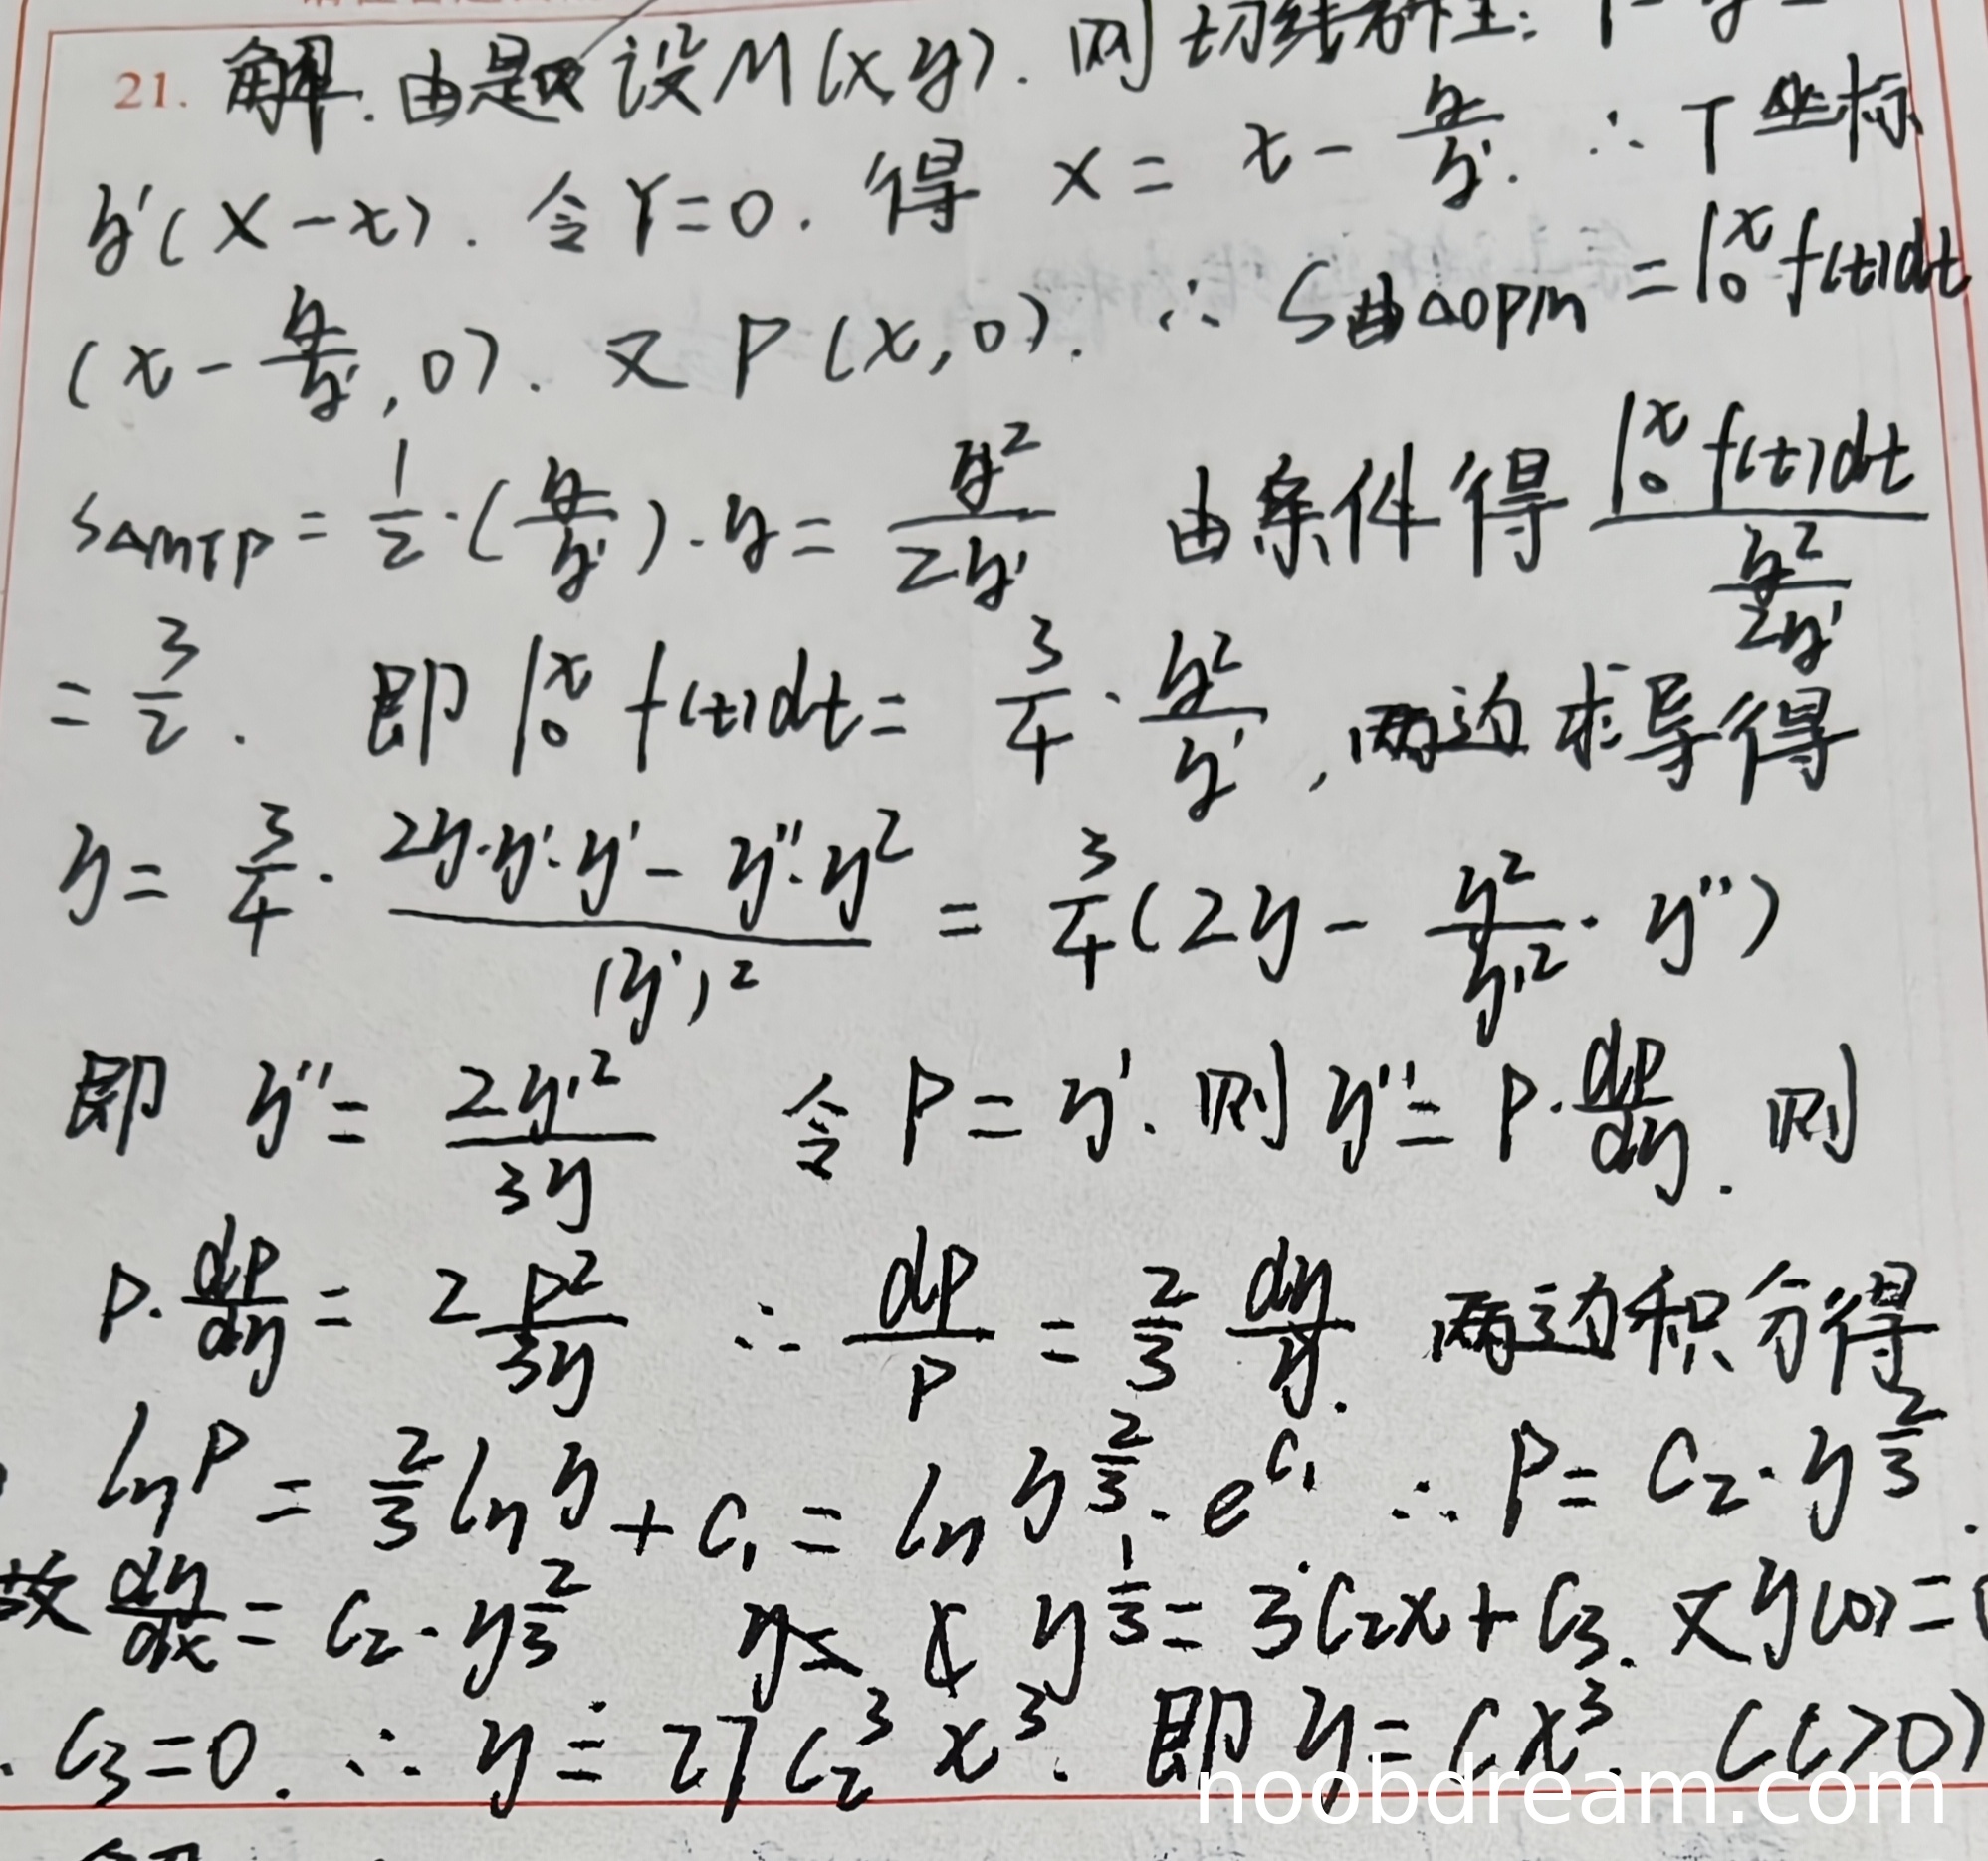 21. 解.由题 设M(x,y). 则切线方程: Y-y=
y'(X-x). 令Y=0. 得 X= x-y/y'. ∴ T坐标
(x-y/y',0). 又P(x,0). ∴ S曲△OPM=∫₀ˣf(t)dt
S△MTP=1/2·(y/y')·y=y²/2y' 由条件得 ∫₀ˣf(t)dt/(y²/2y')
=3/2. 即∫₀ˣf(t)dt=3/4·y²/y', 两边求导得
y=3/4·(2y·y'·y'-y''·y²)/(y')²=3/4(2y-y²/y'²·y'')
即 y''=2y'²/3y 令P=y'. 则y''=P·dP/dy. 则
P·dP/dy=2P²/3y ∴ dP/P=2/3 dy/y. 两边积分得
lnP=2/3lny+C₁=lny^(2/3)·e^(C₁) ∴ P=C₂·y^(2/3).
故dy/dx=C₂·y^(2/3) y^(1/3)=3C₂x+C₃. 又y(0)=0
. C₃=0. ∴ y=27C₂³x³. 即y=Cx³. (C>0)
noobdream.com